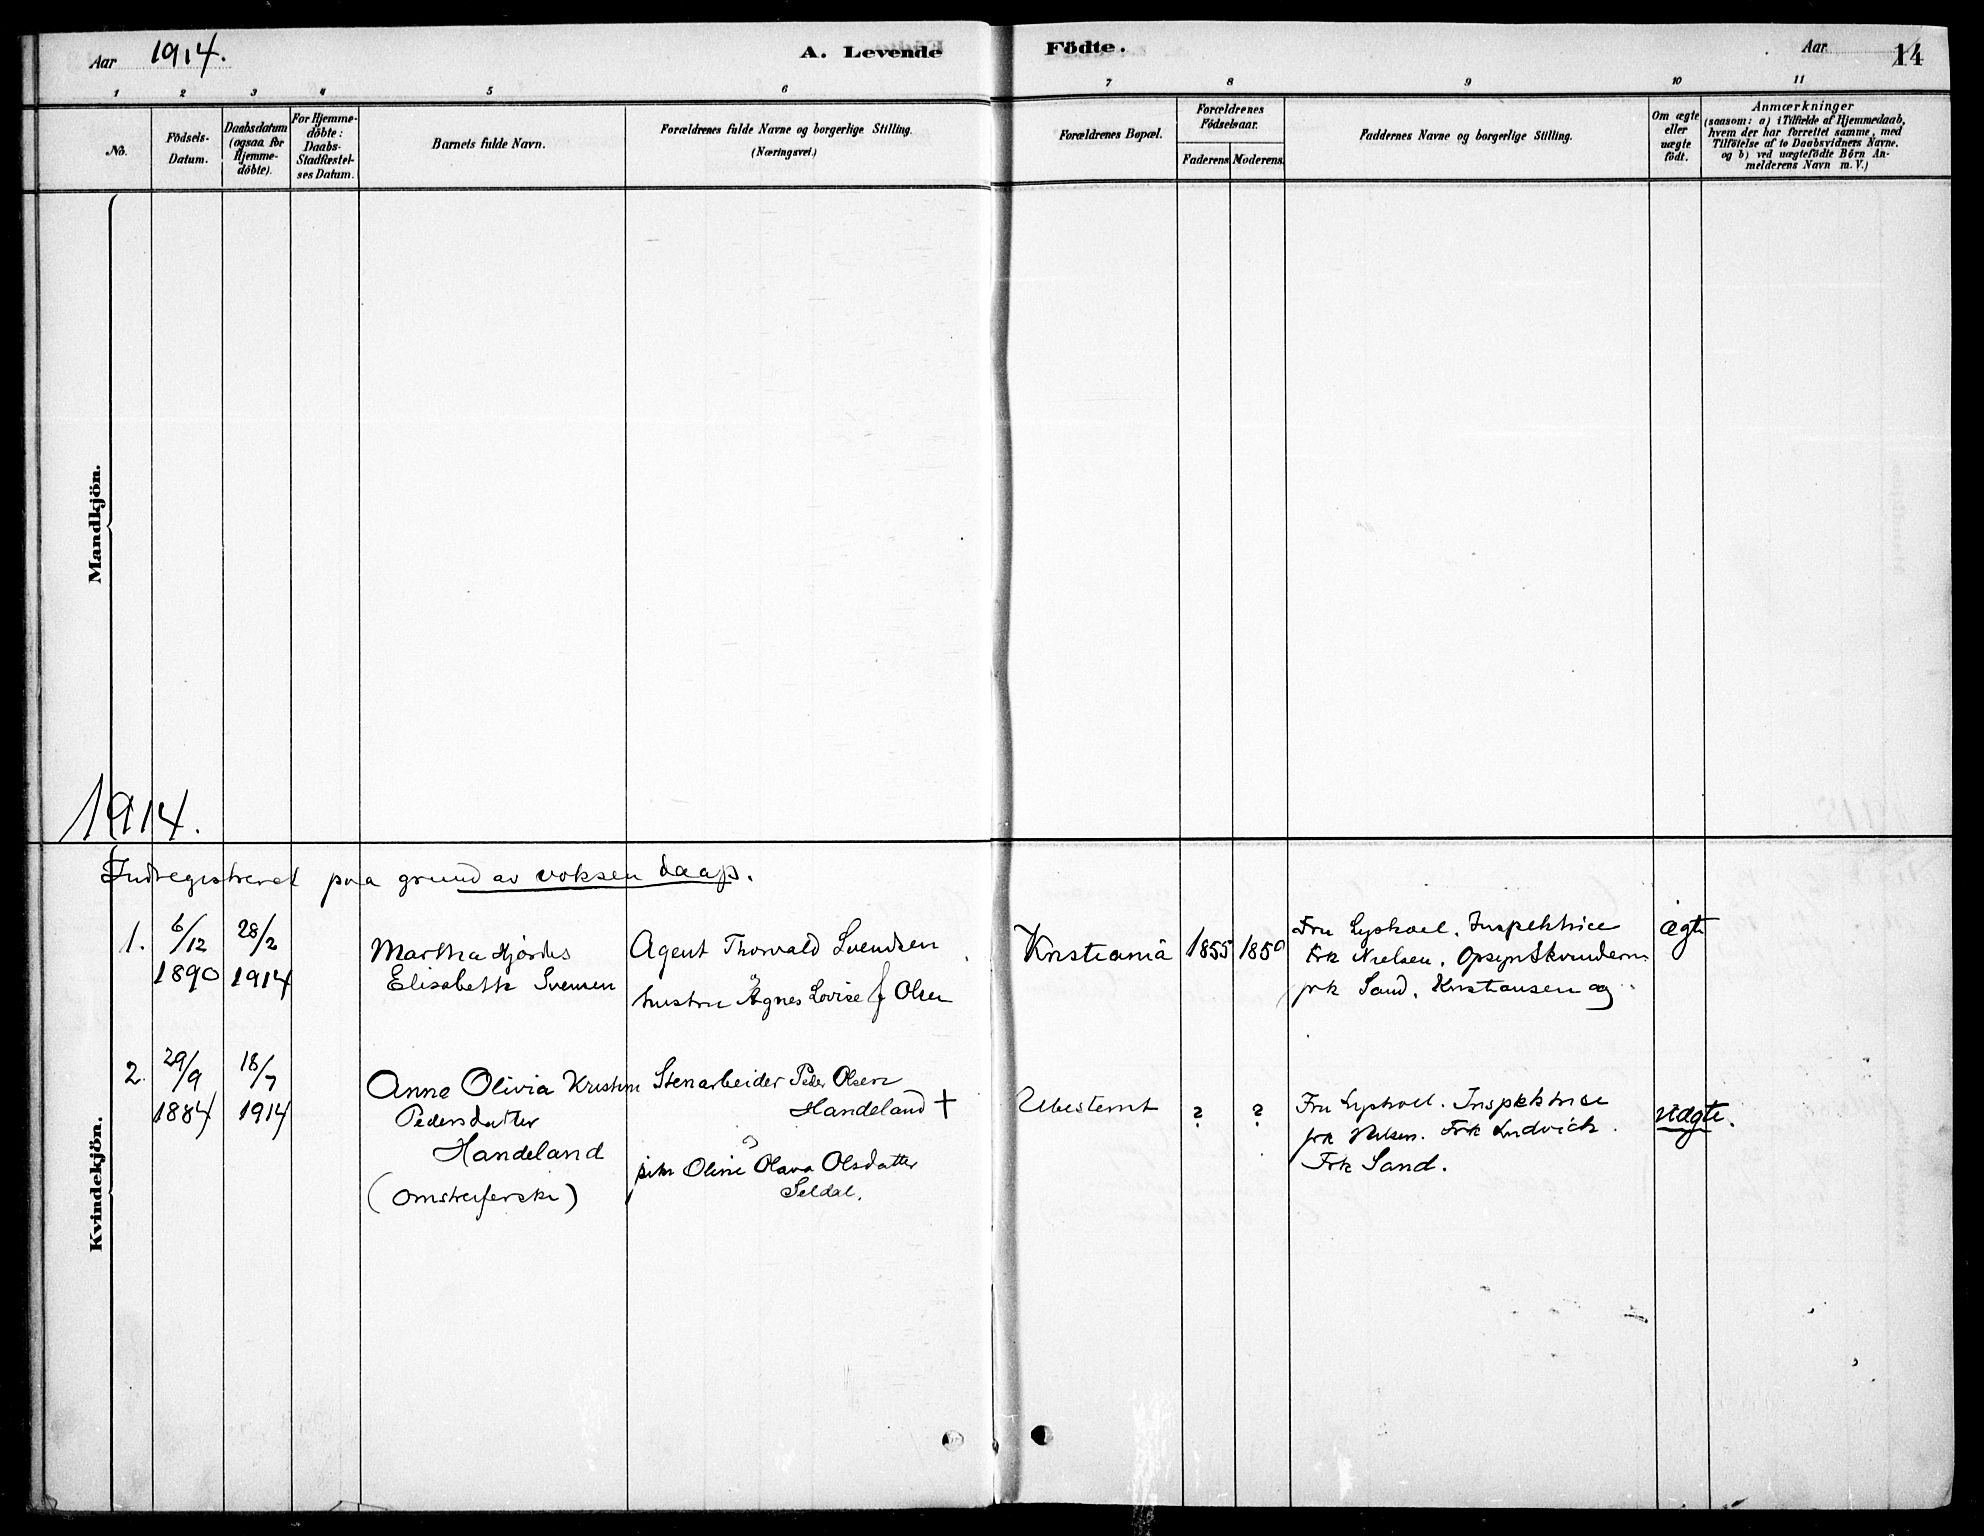 Aar 1914. A. Levende Födte. Aar 14
1 2 3 4 5 6 7 8 9 10 11
No.
Födsels-
Datum.
Daabsdatum
(ogsaa for
Hjemme-
döbte).
For Hjemme-
döbte:
Daabs-
Stadfæstel-
ses Datum.
Barnets fulde Navn.
Forældrenes fulde Navne og borgerlige Stilling.
(Næringsvei.)
Forældrenes Bopæl.
Forældrenes
Födselsaar.
Faderens. Moderens.
Faddernes Navne og borgerlige Stilling.
Om ægte
eller
uægte
födt.
Anmærkninger
(saasom: a) i Tilfælde af Hjemmedaab,
hvem der har forrettet samme, med
Tilföielse af to Daabsvidners Navne.
og b) ved uægtefödte Börn An-
melderens Navn m. V.)
Mandkjön.
1914.
Indregistreret paa grund av voksen daap.
Kvindekjön.
1.
6/12
1890
28/2
1914
Martha Hjördis
Elisabeth Svensen
Agent Thorvald Svendsen
hustru Agnes Lovise f Olsen
Kristiania
1855
1850
Fru . Inspektrice
frk Nielsen. Opsynskvinderne
frk Sand. Kristiansen og
ægte
2.
29/9
1884
18/7
1914
Anne Olivia Kristine
Pedersdatter
Handeland
(omstreiferske)
Stenarbeider Peder Olsen
Handeland †
pike Oline Olava Olsdatter
Seldal.
Ubestemt
?
?
Fru . Inspektrise
frk Nielsen. Frk Ludvick.
Frk Sand.
uægte.